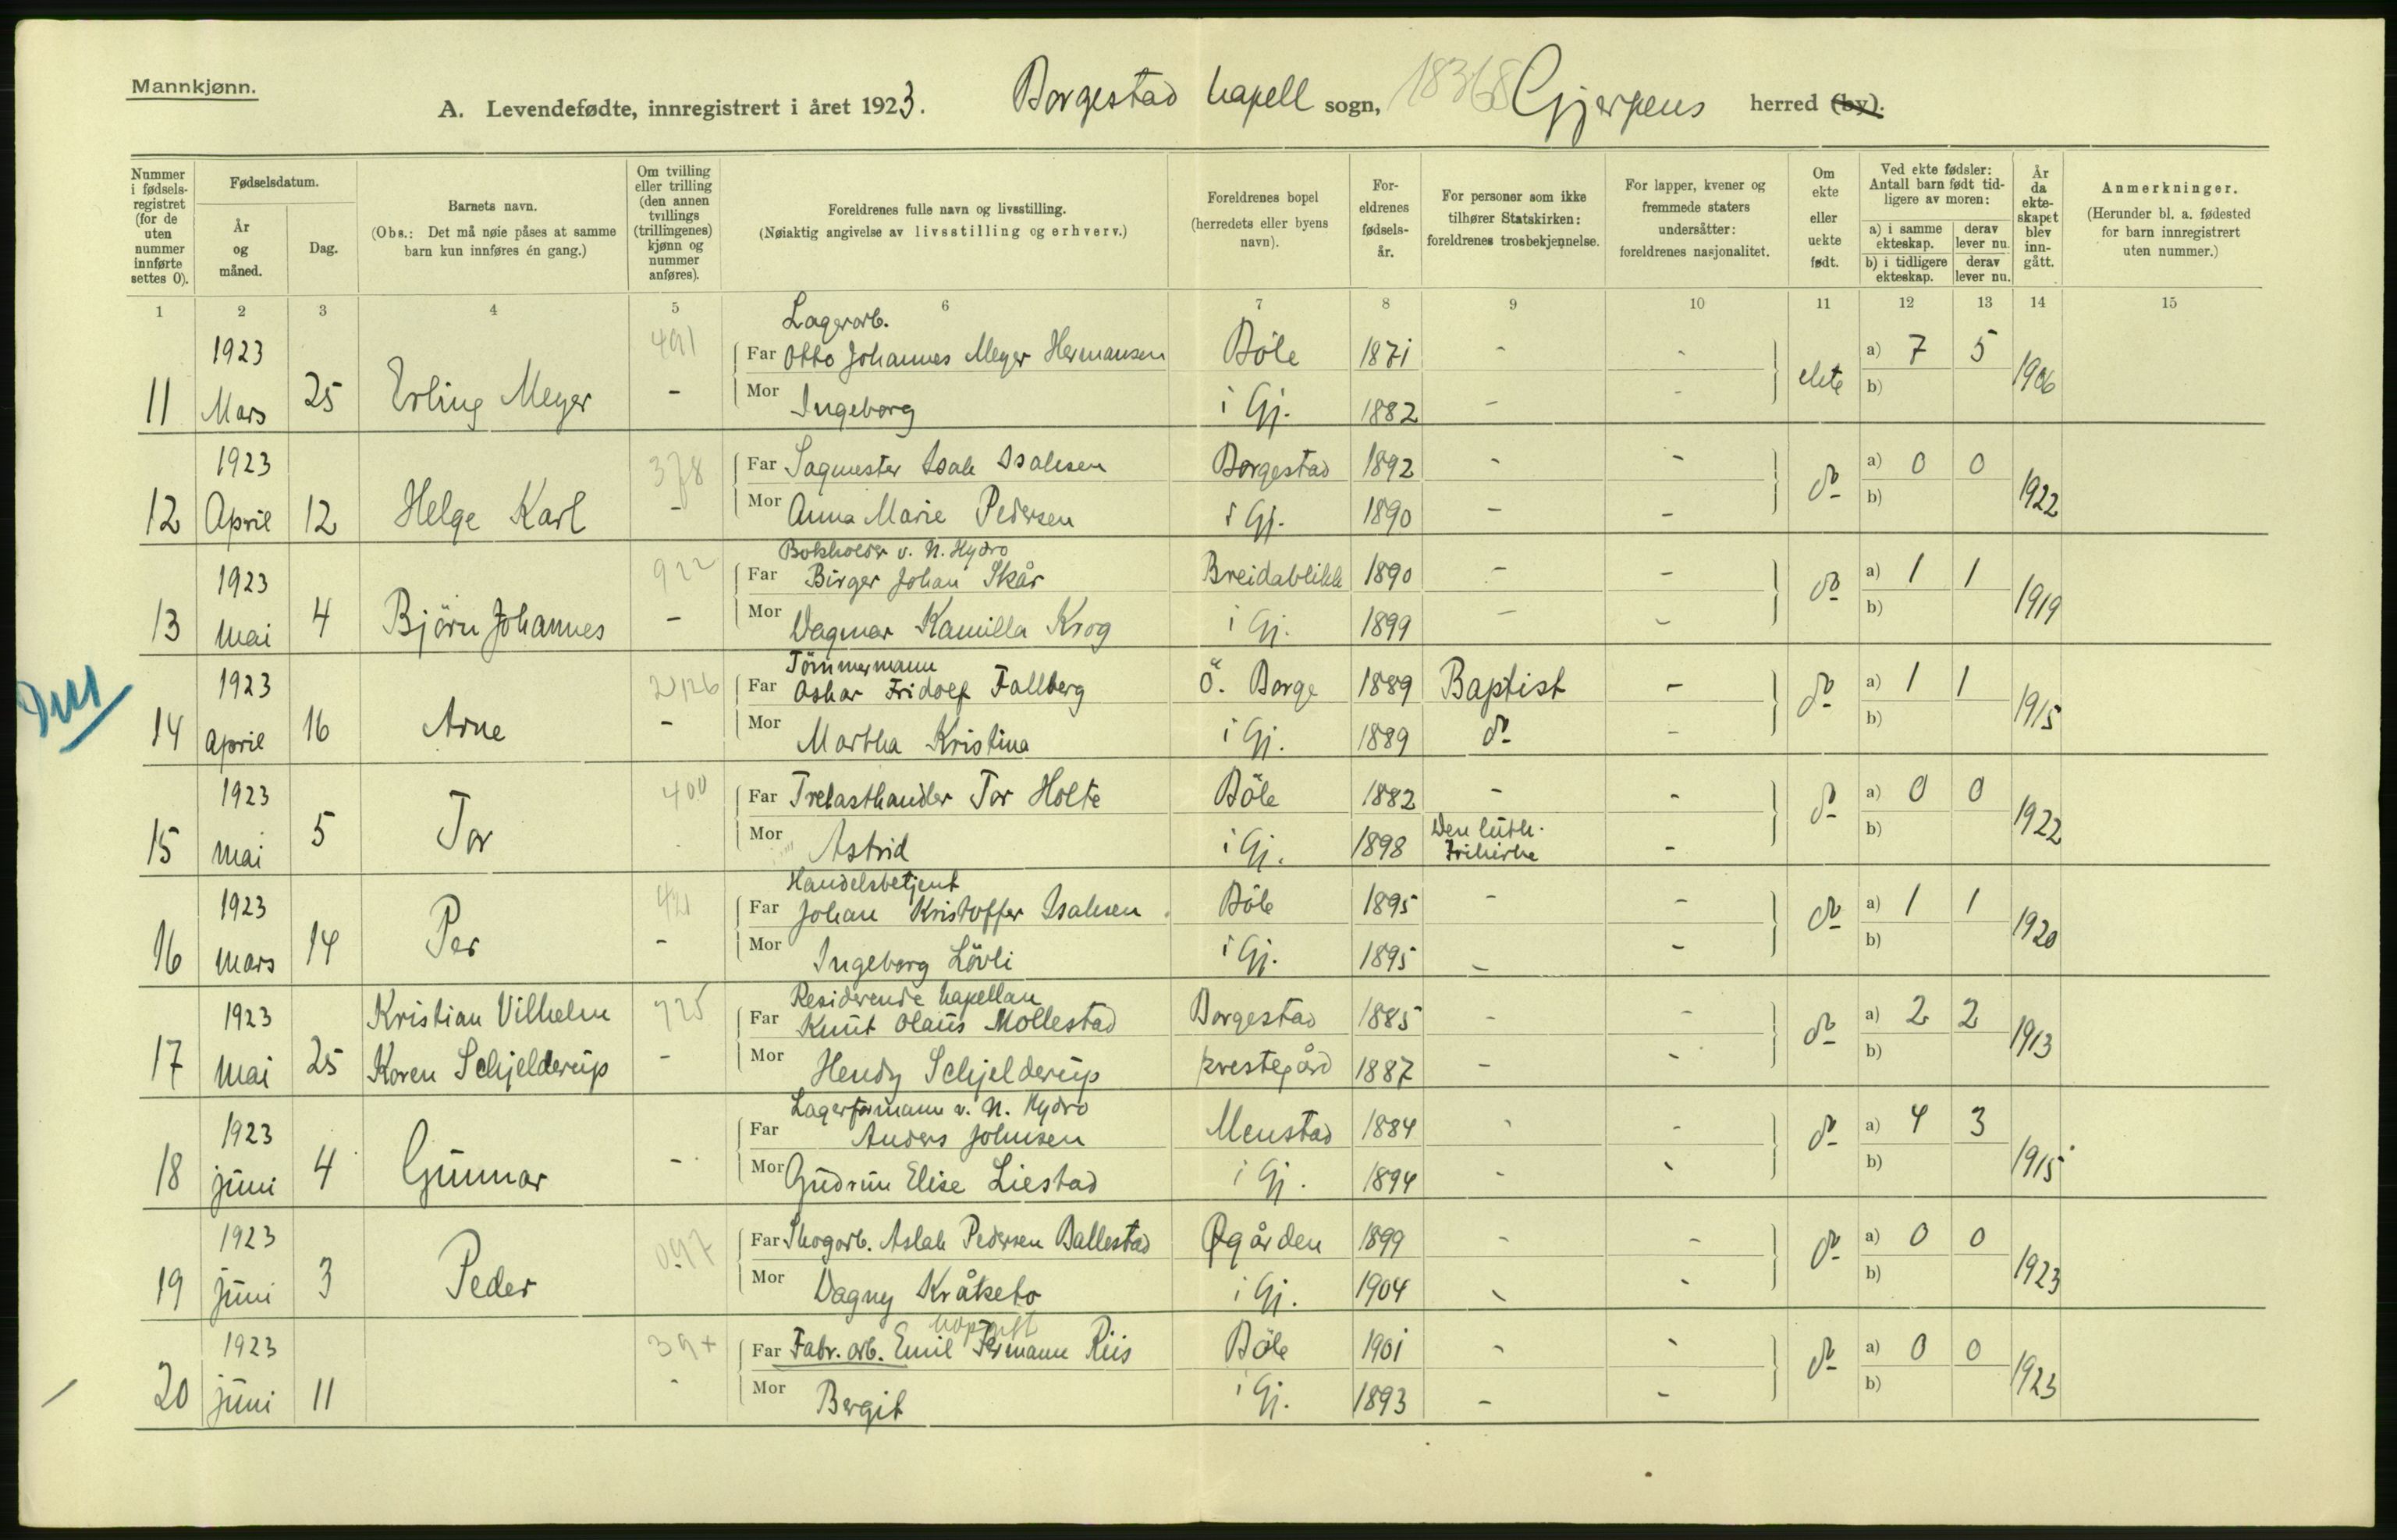 Mannkjønn.
A. Levendefødte, innregistrert i året 1923. Borgestad kapell sogn, Gjerpens herred (by).
Nummer i fødselsregistret (for de uten nummer innførte settes 0).
Fødselsdatum.
År og måned.
Dag.
Barnets navn.
(Obs.: Det må nøie påses at samme barn kun innføres én gang.)
Om tvilling eller trilling (den annen tvillings (trillingenes) kjønn og nummer anføres).
Foreldrenes fulle navn og livsstilling.
(Nøiaktig angivelse av livsstilling og erhverv.)
Foreldrenes bopel (herredets eller byens navn).
Foreldrenes fødselsår.
For personer som ikke tilhører Statskirken: foreldrenes trosbekjennelse.
For lapper, kvener og fremmede staters undersåtter: foreldrenes nasjonalitet.
Om ekte eller uekte født.
Ved ekte fødsler: Antall barn født tidligere av moren:
a) i samme ekteskap. derav lever nu.
b) i tidligere ekteskap. derav lever nu.
År da ekteskapet blev inngått.
Anmerkninger.
(Herunder bl. a. fødested for barn innregistrert uten nummer.)
1 2 3 4 5 6 7 8 9 10 11 12 13 14 15
491 Lagerarb.
1923 Far Otto Johannes Meyer Hermansen Böle 1871 - - a) 7 5
11 Mars 25 Erling Meyer - Mor Ingeborg i Gj. 1882 - - ekte b) 1906
1923 378 Far Sagmester Isak Isaksen Borgestad 1892 - - a) 0 0
12 April 12 Helge Karl - Mor Anna Marie Pedersen i Gj. 1890 - - do b) 1922
922 Bokholder v. N. Hydro
1923 Far Birger Johan Skår Breidablikk 1890 - - a) 1 1
13 mai 4 Björn Johannes - Mor Dagmar Kamilla Krog i Gj. 1899 - - do b) 1919
Tömmermann
1923 Far Oskar Fridolf Fallberg Ö. Borge 1889 Baptist - a) 1 1
14 april 16 Arne - Mor Martha Kristina i Gj. 1889 do - do b) 1915
1923 400 Far Trelasthandler Tor Holte Böle 1882 - - a) 0 0
15 mai 5 Tor Mor Astrid i Gj. 1898 Den luth. Frikirke - do b) 1922
421 Handelsbetjent
1923 Far Johan Kristoffer Isaksen Böle 1895 - - a) 1 1
16 mars 14 Per - Mor Ingeborg Lövli i Gj. 1895 - - do b) 1920
925 Residerende kapellan
1923 Kristian Vilhelm Far Knut Olaus Mollestad Borgestad 1885 - - a) 2 2
17 mai 25 Koren Schjelderup - Mor Hendy Schjelderup prestegård 1887 - - do b) 1913
Lagerformann v. N. Hydro
1923 Far Anders Johnsen Menstad 1884 - - a) 4 3
18 juni 4 Gunnar - Mor Gudrun Elise Liestad i Gj. 1894 - - do b) 1915
1923 097 Far Skogarb. Aslak Pedersen Ballestad Øgården 1899 - - a) 0 0
19 juni 3 Peder - Mor Dagny Kråkebo i Gj. 1904 - - do b) 1923
1923 Far Fabr. arb. Emil Riis Böle 1901 - - a) 0 0
20 juni 11 - Mor Bergit i Gj. 1893 - - do b) 1923